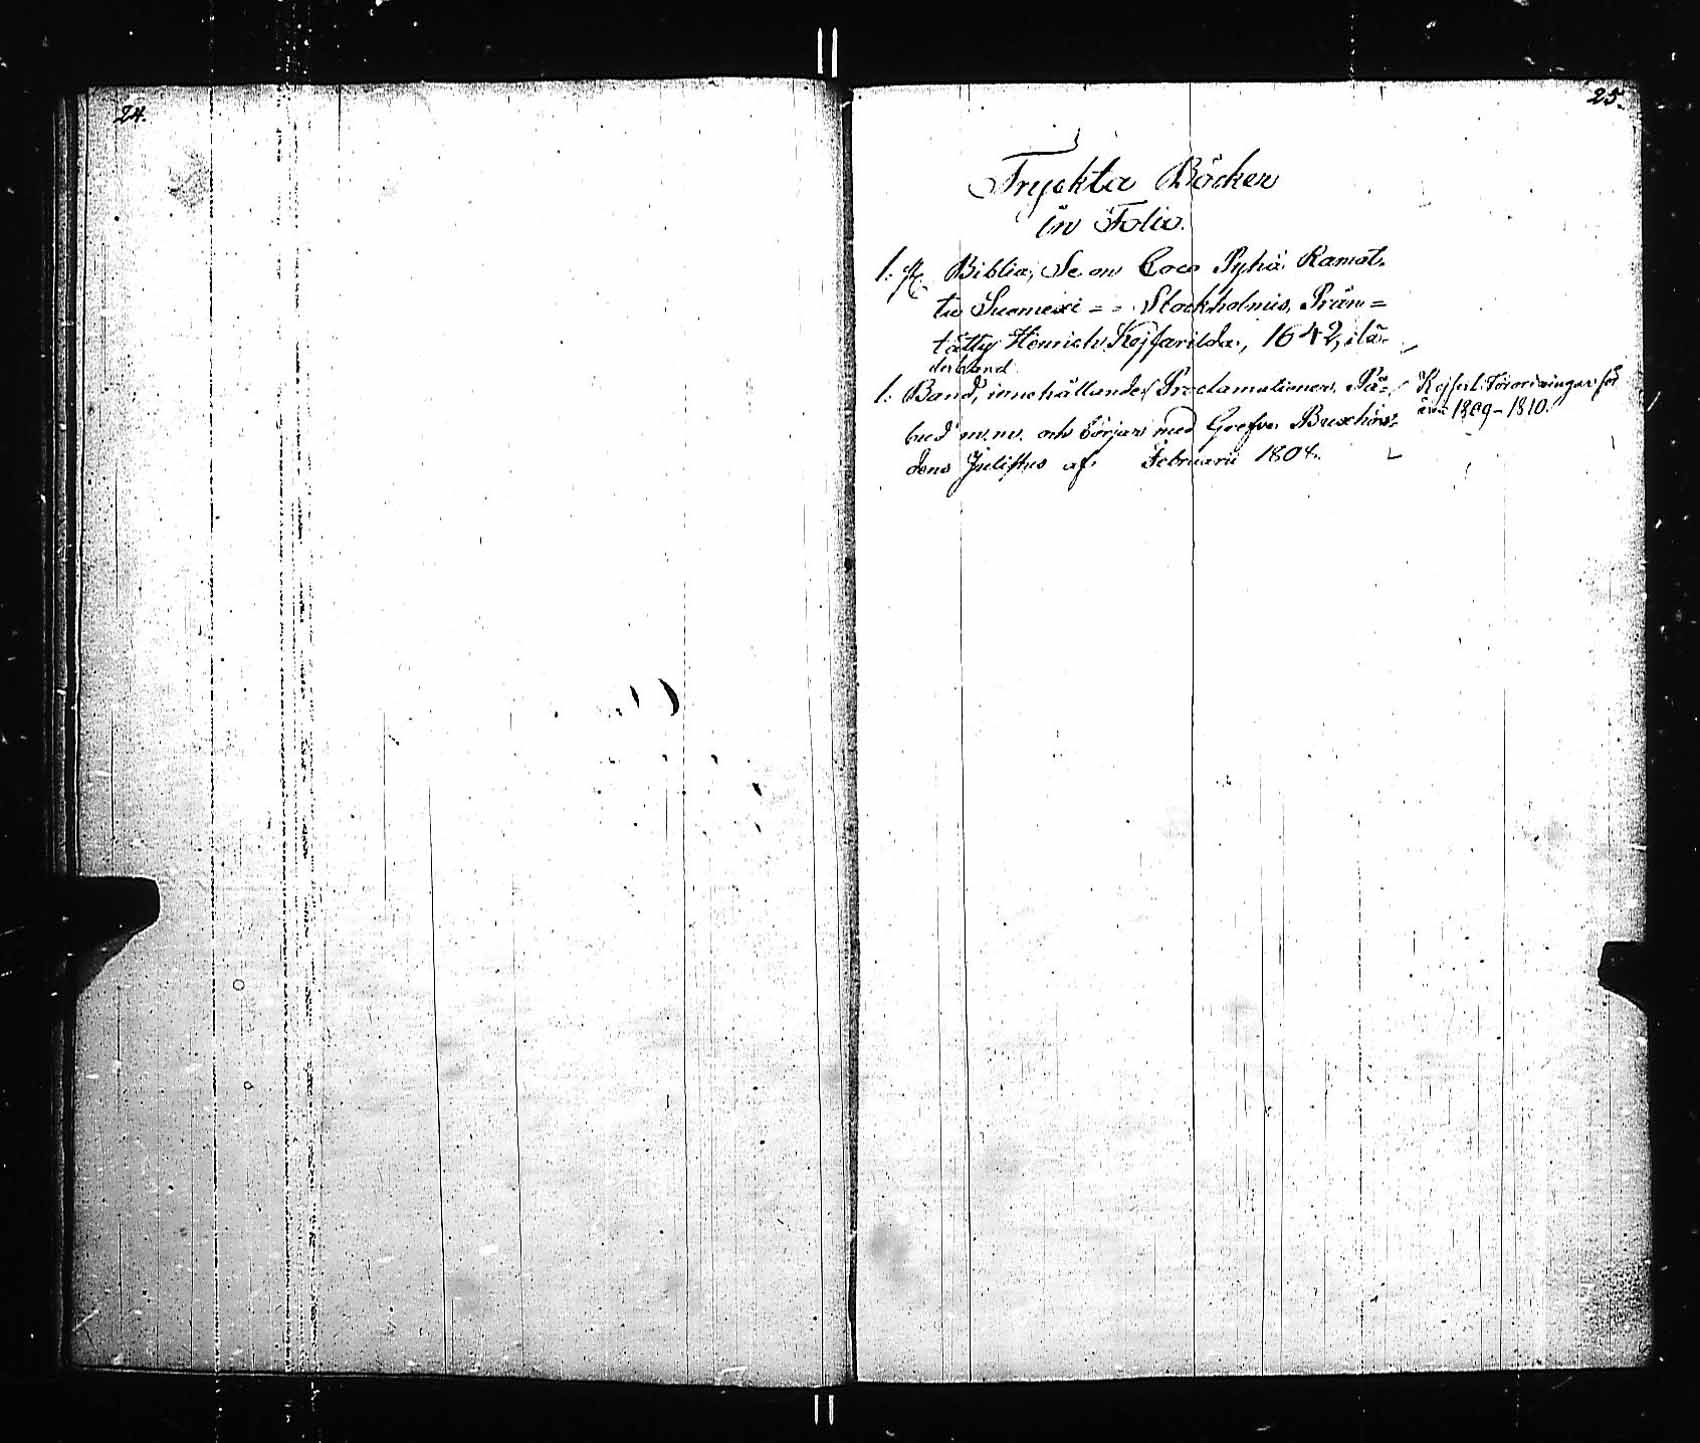 24.
25.
Tryckta Böcker
in Folio.
1. st. Biblia, Se on Coco Pyhä Ramat-
tu Suomexi = = Stockholmis, Prän=
tätty Henrich Kejsarilda, 1642, i lä-
derband
1. Band, innehållande Proclamationer, På=
bud m.m. och börjar med Grefve Buxhöw=
dens af Februarii 1808.
Kejserl. Förordningar för
åren 1809-1810.